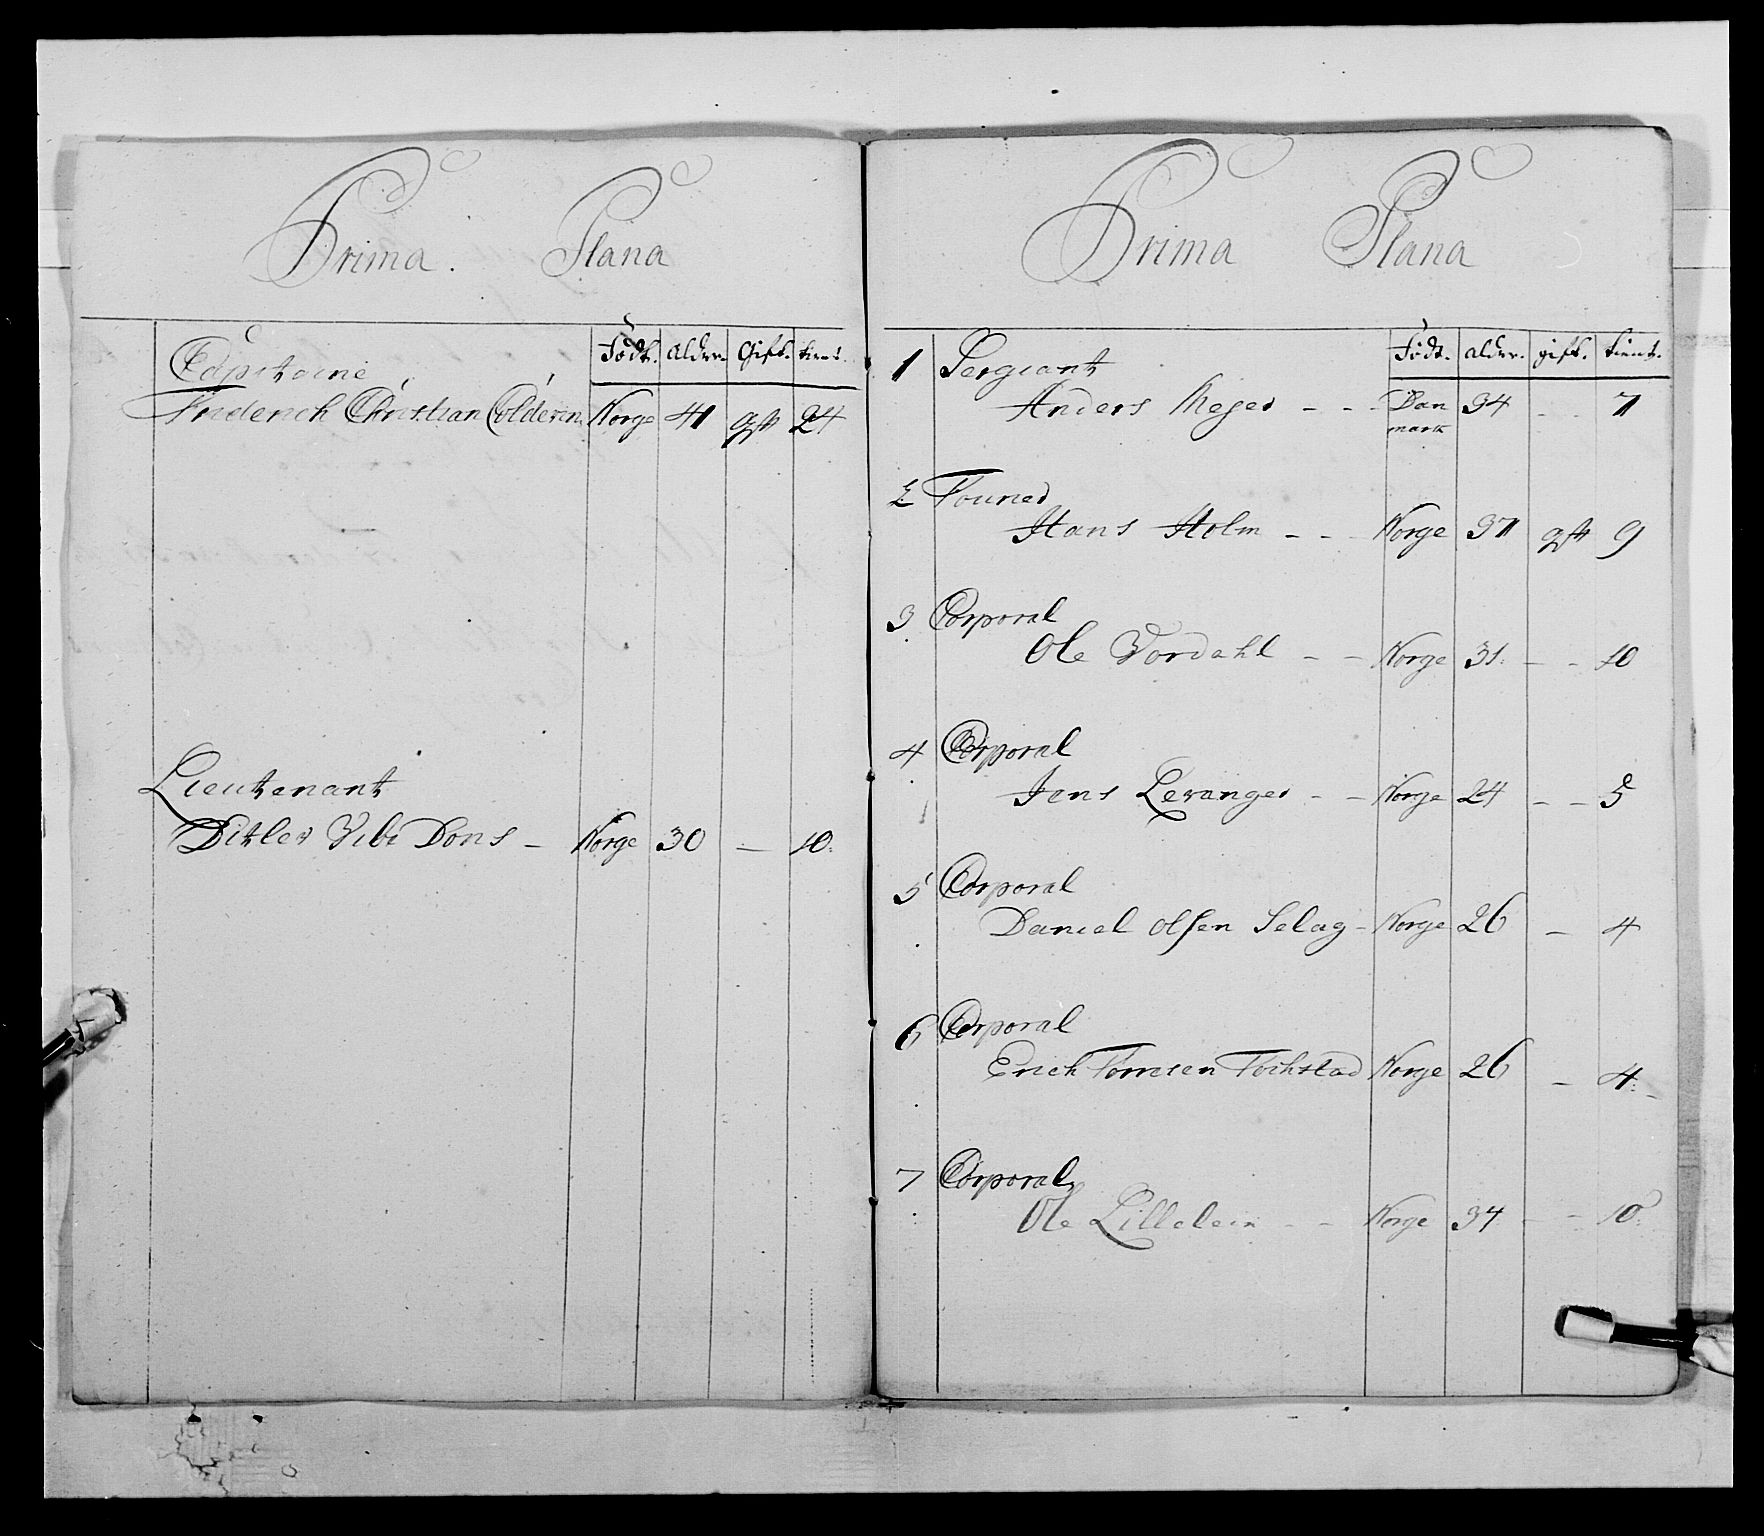 Prima. Plana
Födt. alder. Gift. tient.
Capitaine
Friderich Christian Colderin Norge 41 gift 24
Lieutenant
Ditlev Vibe Dons - Norge 30 - 10.
Prima Plana
Födt. alder. gift. tient.
1 Sergiant
Anders Meyer - - Dan 34 - - 7
mark
2 Founer
Hans Holm - - Norge 37 gift 9
3 Corporal
Ole Vordahl - - Norge 31. - - 10
4 Corporal
Jens Levanger - - Norge 24 - - 5
5 Corporal
Daniel Olsen Selag - Norge 26 - 4
6 Corporal
Erich Torresen Norge 26 - 4.
7 Corporal
Ole - - Norge 34 - - 10.